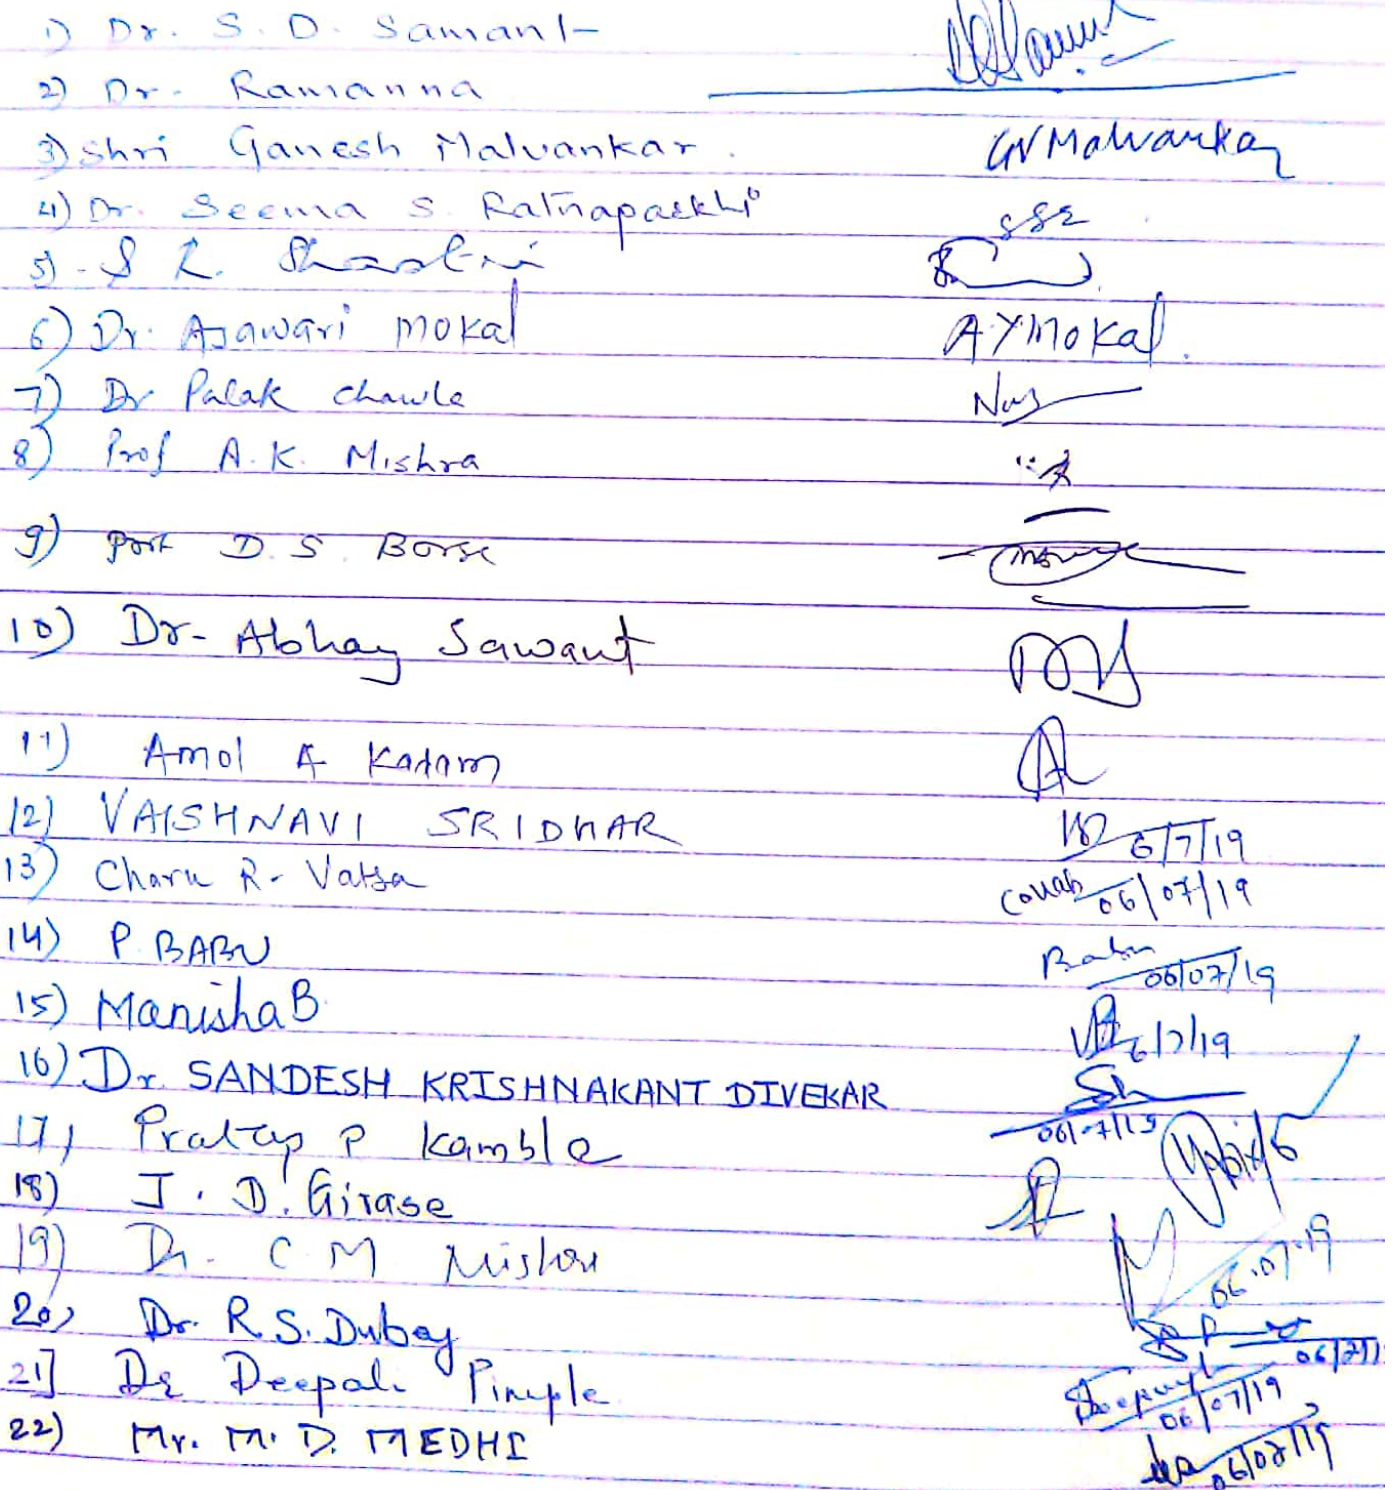 1) Dr. S. D. Samant
2) Dr. Ramanna
3) Shri Ganesh Malvankar. GVMalvankar
4) Dr. Seema S. Ratnaparkhi
5) S R. Shastri
6) Dr. Asawari Mokal A.Y.Mokal.
7) Dr Palak Chawla
8) Prof A.K. Mishra
9) Prof D.S. Borse
10) Dr- Abhay Sawant
11) Amol A Kadam
12) VAISHNAVI SRIDHAR 6/7/19
13) Charu R. Vatsa 06/07/19
14) P. BABU Babu 06/07/19
15) Manisha B 6/7/19
16) Dr. SANDESH KRISHNAKANT DIVEKAR 06/7/19
17) Pratap P Kamble
18) J. D. Girase
19) Dr. C M Mishra 06.07.19
20) Dr. R.S. Dubey
21] Dr Deepali Pimple 06/07/19
22) Mr. M. D. MEDHI